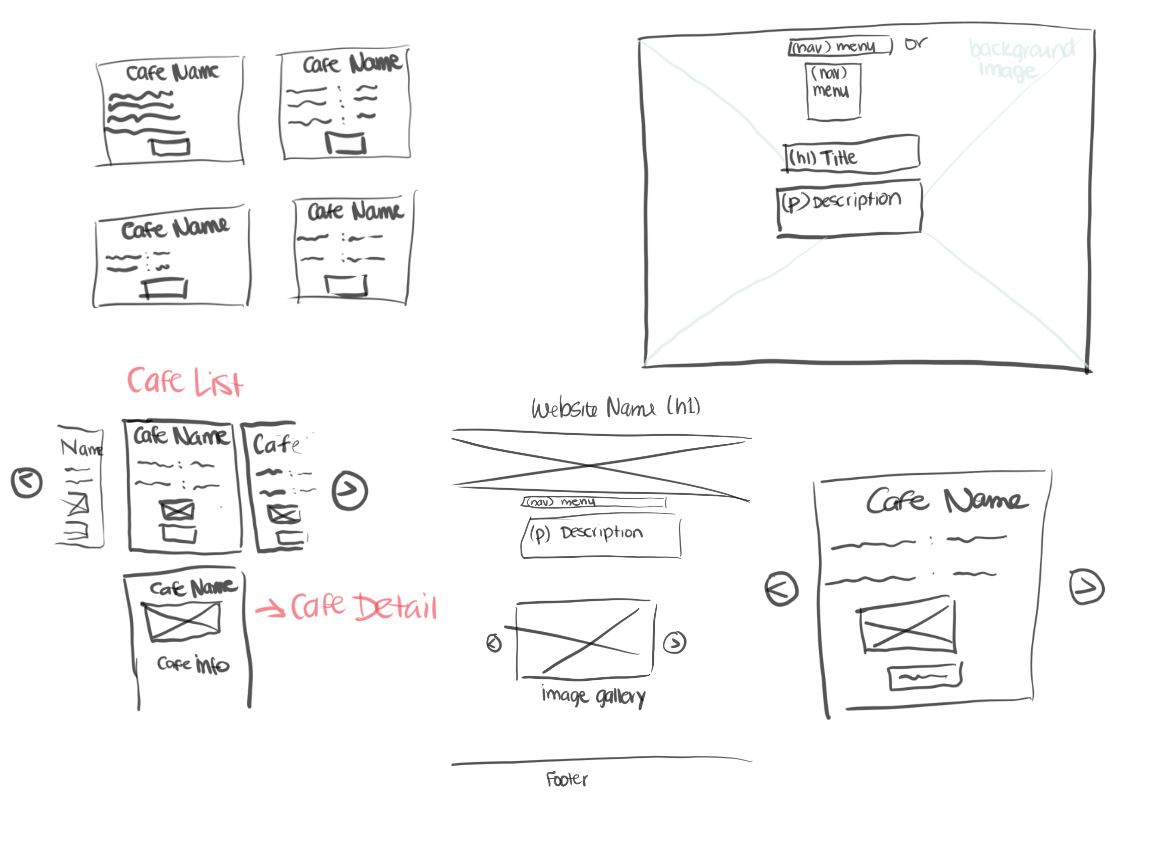 Cafe Name
Cafe Name
Cafe Name
Cafe Name
(nav) menu or
background
image
(nav)
menu
(h1) Title
(p) Description
Cafe List
Name
Cafe Name
Cafe
<
>
Cafe Name
Cafe info
→ Cafe Detail
Website Name (h1)
(nav) menu
(p) Description
<
>
image gallery
Footer
Cafe Name
<
>